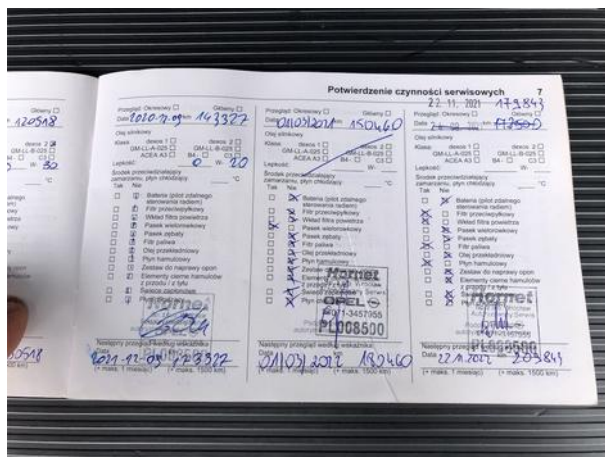 Potwierdzenie czynności serwisowych 7
Główny
120518
W- 30
Przegląd: Okresowy Główny
Data 2020-12-09 km 143327
Olej silnikowy
Klasa: dexos 1 dexos 2
GM-LL-A-025 GM-LL-B-025
ACEA A3 B4 - C3
Lepkość: 0 W- 20
Środek przeciwdziałający
zamarzaniu, płyn chłodzący °C
Tak Nie
Bateria (pilot zdalnego
sterowania radiem)
Filtr przeciwpyłkowy
Wkład filtra powietrza
Pasek wielorowkowy
Pasek zębaty
Filtr paliwa
Olej przekładniowy
Płyn hamulcowy
Zestaw do naprawy opon
Elementy cierne hamulców
z przodu / z tyłu
Świece zapłonowe
Następny przegląd według wskaźnika:
Data
(+ maks. 1 miesiąc) (+ maks. 1500 km)
Przegląd: Okresowy Główny
Data 01/03/2021 150460
Olej silnikowy
Klasa: dexos 1 dexos 2
GM-LL-A-025 GM-LL-B-025
ACEA A3 B4 - C3
Lepkość: W-
Środek przeciwdziałający
zamarzaniu, płyn chłodzący °C
Tak Nie
Bateria (pilot zdalnego
sterowania radiem)
Filtr przeciwpyłkowy
Wkład filtra powietrza
Pasek wielorowkowy
Pasek zębaty
Filtr paliwa
Olej przekładniowy
Płyn hamulcowy
Hornet
OPEL
PL008500
Następny przegląd według wskaźnika:
Data 01/03/2022 180460
(+ maks. 1 miesiąc) (+ maks. 1500 km)
22. 11. 2021 179843
Przegląd: Okresowy Główny
Data
Olej silnikowy
Klasa: dexos 1 dexos 2
GM-LL-A-025 GM-LL-B-025
ACEA A3 B4 - C3
Lepkość: W-
Środek przeciwdziałający
zamarzaniu, płyn chłodzący °C
Tak Nie
Bateria (pilot zdalnego
sterowania radiem)
Filtr przeciwpyłkowy
Wkład filtra powietrza
Pasek wielorowkowy
Pasek zębaty
Filtr paliwa
Olej przekładniowy
Płyn hamulcowy
Zestaw do naprawy opon
Elementy cierne hamulców
z przodu / z tyłu
Hornet
PL008500
Następny przegląd
Data 22.11.2022 209843
(+ maks. 1 miesiąc) (+ maks. 1500 km)